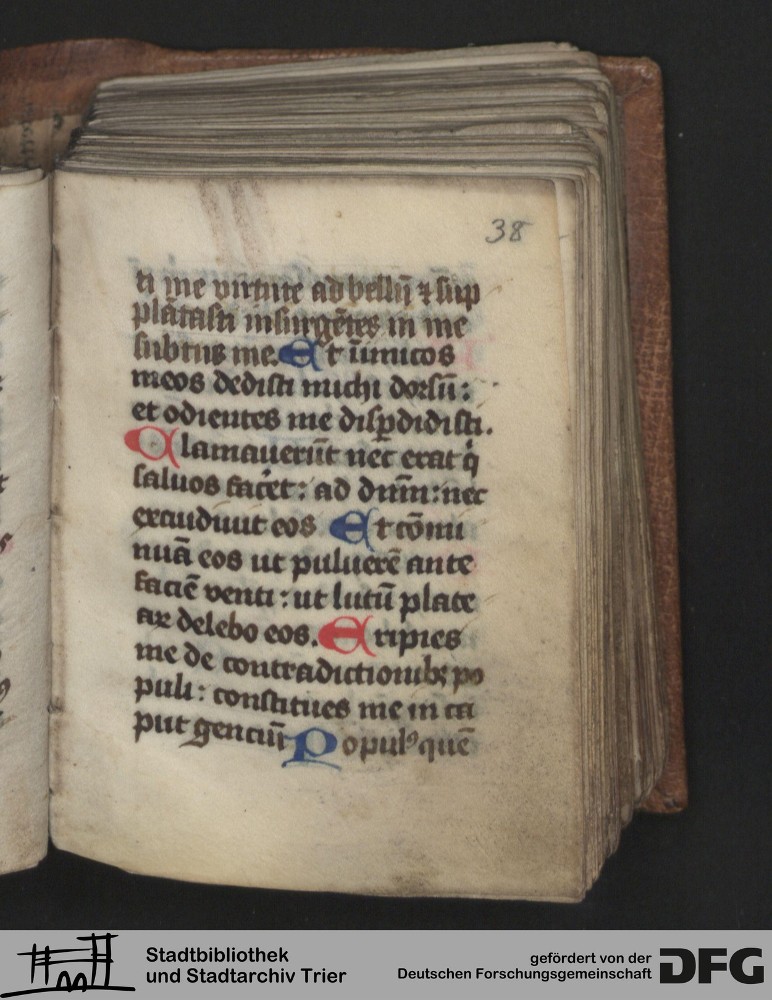 38
ti me virtute ad bellū ⁊ sup
plātasti insurgētes in me
subtus me. Et inimicos
meos dedisti michi dorsū:
et odientes me disꝑdidisti.
Clamauerūt nec erat q̇
saluos facēt: ad dn̄m: nec
exaudiuit eos Et cōmi
nuā eos ut puluerē ante
faciē venti: ut lutū plate
aꝝ delebo eos. Eripies
me de contradictionibꝫ po
puli: constitues me in ca
put gentiū Populꝰ quē
Stadtbibliothek
und Stadtarchiv Trier
gefördert von der
Deutschen Forschungsgemeinschaft
DFG